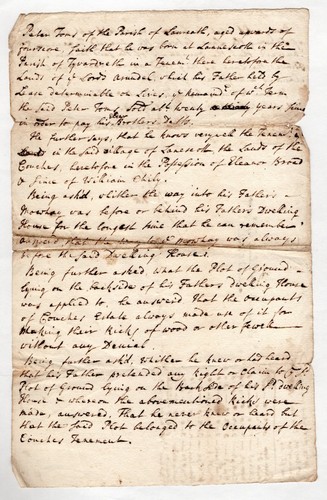 Peter Toms of the Parish of Lanreath, aged upwards of
fourscore, saith that he was born at Lanescoth in the
Parish of Tywardreth in a Tenemt. there heretofore the
Lands of ye Lords Arundel, which his Father held by
Lease determinable on Lives, & Remaindr. of wh. Term
the said Peter Toms Sold abt. twenty years since
in order to pay his Brothers Debts.
He further says, that he knows very well the Tenemt.
in the said village of Lanescoth the Lands of the
Couches, heretofore in the Possession of Eleanor Broad
& since of William Chily.
Being ask'd, whither the way into his Father's
Mowhay was before or behind his Father's Dwelling
House for the longest time that he can remember
answerd that the way to ye Mowhay was always
before the said Dwelling Houses.
Being further asked what the Plot of Ground
lying on the backside of his Father's Dwelling House
was applied to, he answered That the Occupants
of Couches Estate always made use of it for
making their Ricks of wood or other fewel
without any Denial.
Being further ask'd, Whither he knew or had heard
that his Father pretended any Right or Claim to ye sd.
Plot of Ground lying on the back side of his sd. Dwelling
House & whereon the abovementioned Ricks were
made, answered, That he never knew or heard but
that the said Plot belonged to the Occupants of the
Couches Tenement.